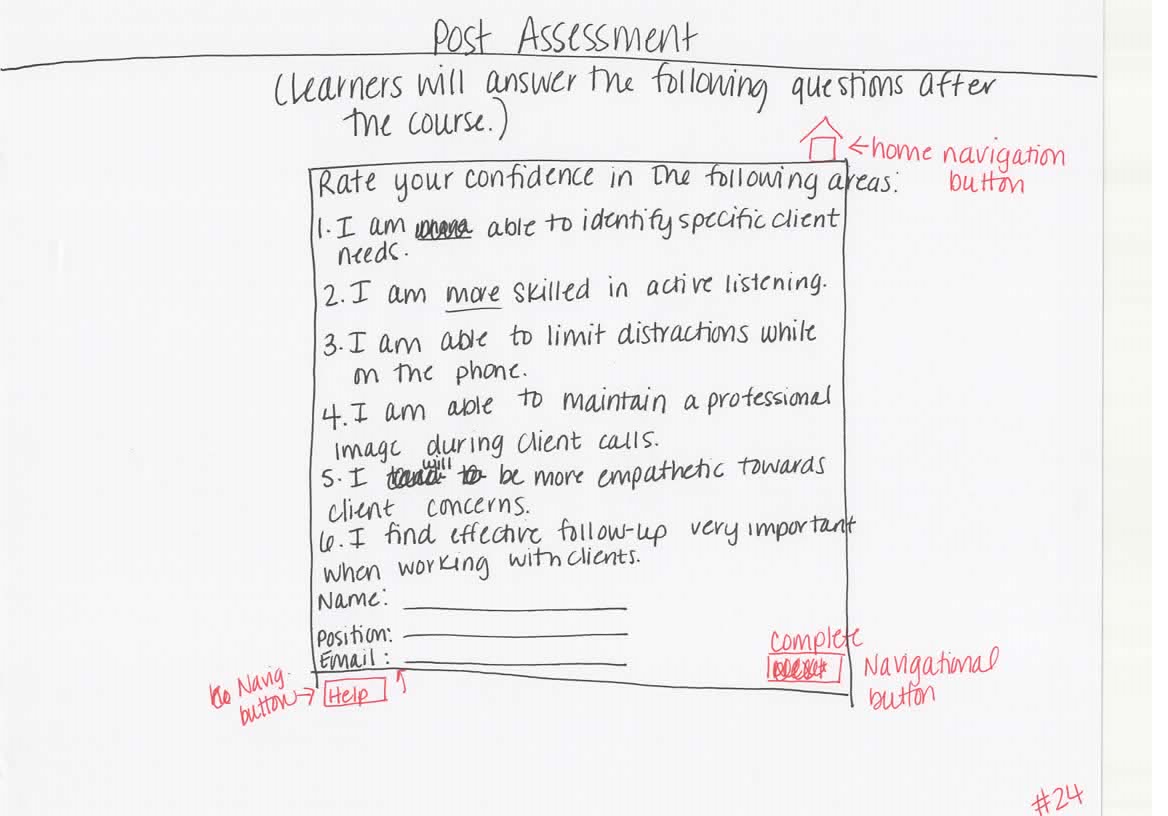 Post Assessment
(Learners will answer the following questions after
the course.)
←home navigation
button
Rate your confidence in the following areas:
1. I am able to identify specific client
needs.
2. I am more skilled in active listening.
3. I am able to limit distractions while
on the phone.
4. I am able to maintain a professional
image during client calls.
5. I will be more empathetic towards
client concerns.
6. I find effective follow-up very important
when working with clients.
Name:
Position:
Email:
complete
Navigational
button
Navig.
button→
Help
#24